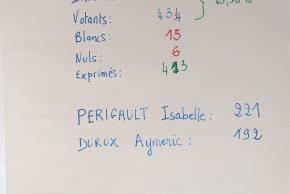 Votants: 434
Blancs: 15
Nuls: 6
Exprimés: 413
PERIGAULT Isabelle: 221
DUROX Aymeric: 192